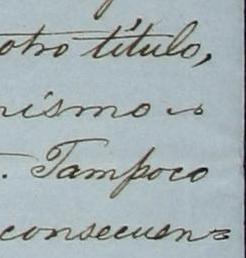 otro título,
nismo o
. Tampoco
consecuen=